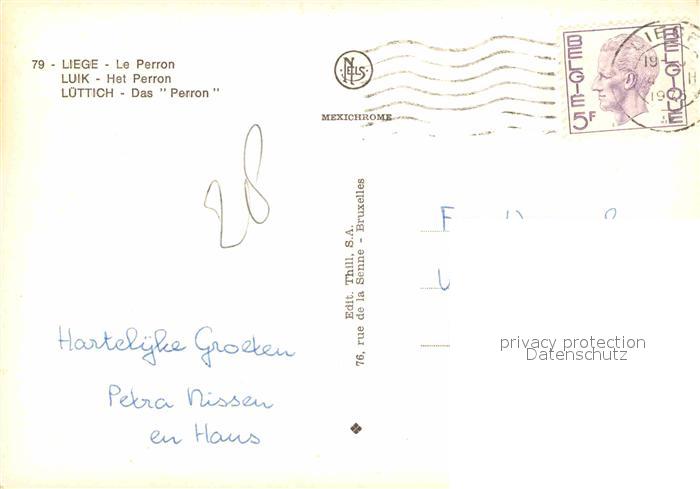 79 - LIEGE - Le Perron
LUIK - Het Perron
LÜTTICH - Das " Perron "
NELS
MEXICHROME
BELGIE
BELGIQUE
5F
28
Edit. Thill, S.A.
76, rue de la Senne - Bruxelles
privacy protection
Datenschutz
Hartelijke Groeten
Petra Nissen
en Hans